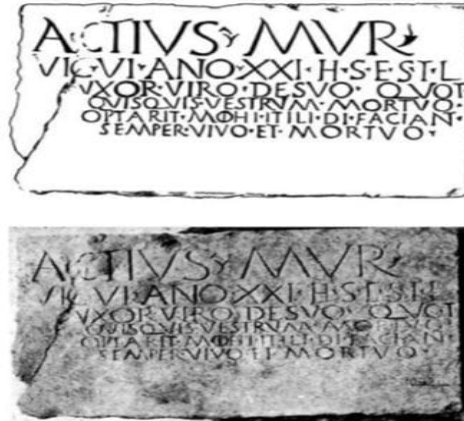 ACTIVS MVR
VIC·VI·ANO·XXI·H·S·E·S·T·L
VXOR·VIRO·DE SVO· QVOT
QVISQVIS·VESTRVM·MORTVO·
OPTARIT·MΦHI·IT ILI·DI·FACIAN·
SEMPER·VIVO·ET·MORTVO·
ACTIVS MVR
VIC·VI·ANO·XXI·H·S·E·S·T·L
VXOR·VIRO·DE SVO· QVOT
QVISQVIS·VESTRVM·MORTVO·
OPTARIT·MΦHI·IT ILI·DI·FACIAN·
SEMPER·VIVO·ET·MORTVO·